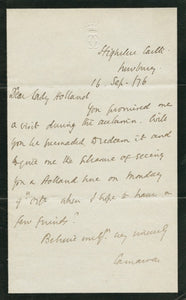 Highclere Castle
Newbury
16. Sep. /76
Dear Lady Holland
You promised me
a visit during the autumn. Will
you be persuaded to redeem it and
give me the pleasure of seeing
you & Holland here on Monday
9th Octr when I hope to have a
few friends?
Believe me yrs very sincerely
Carnarvon